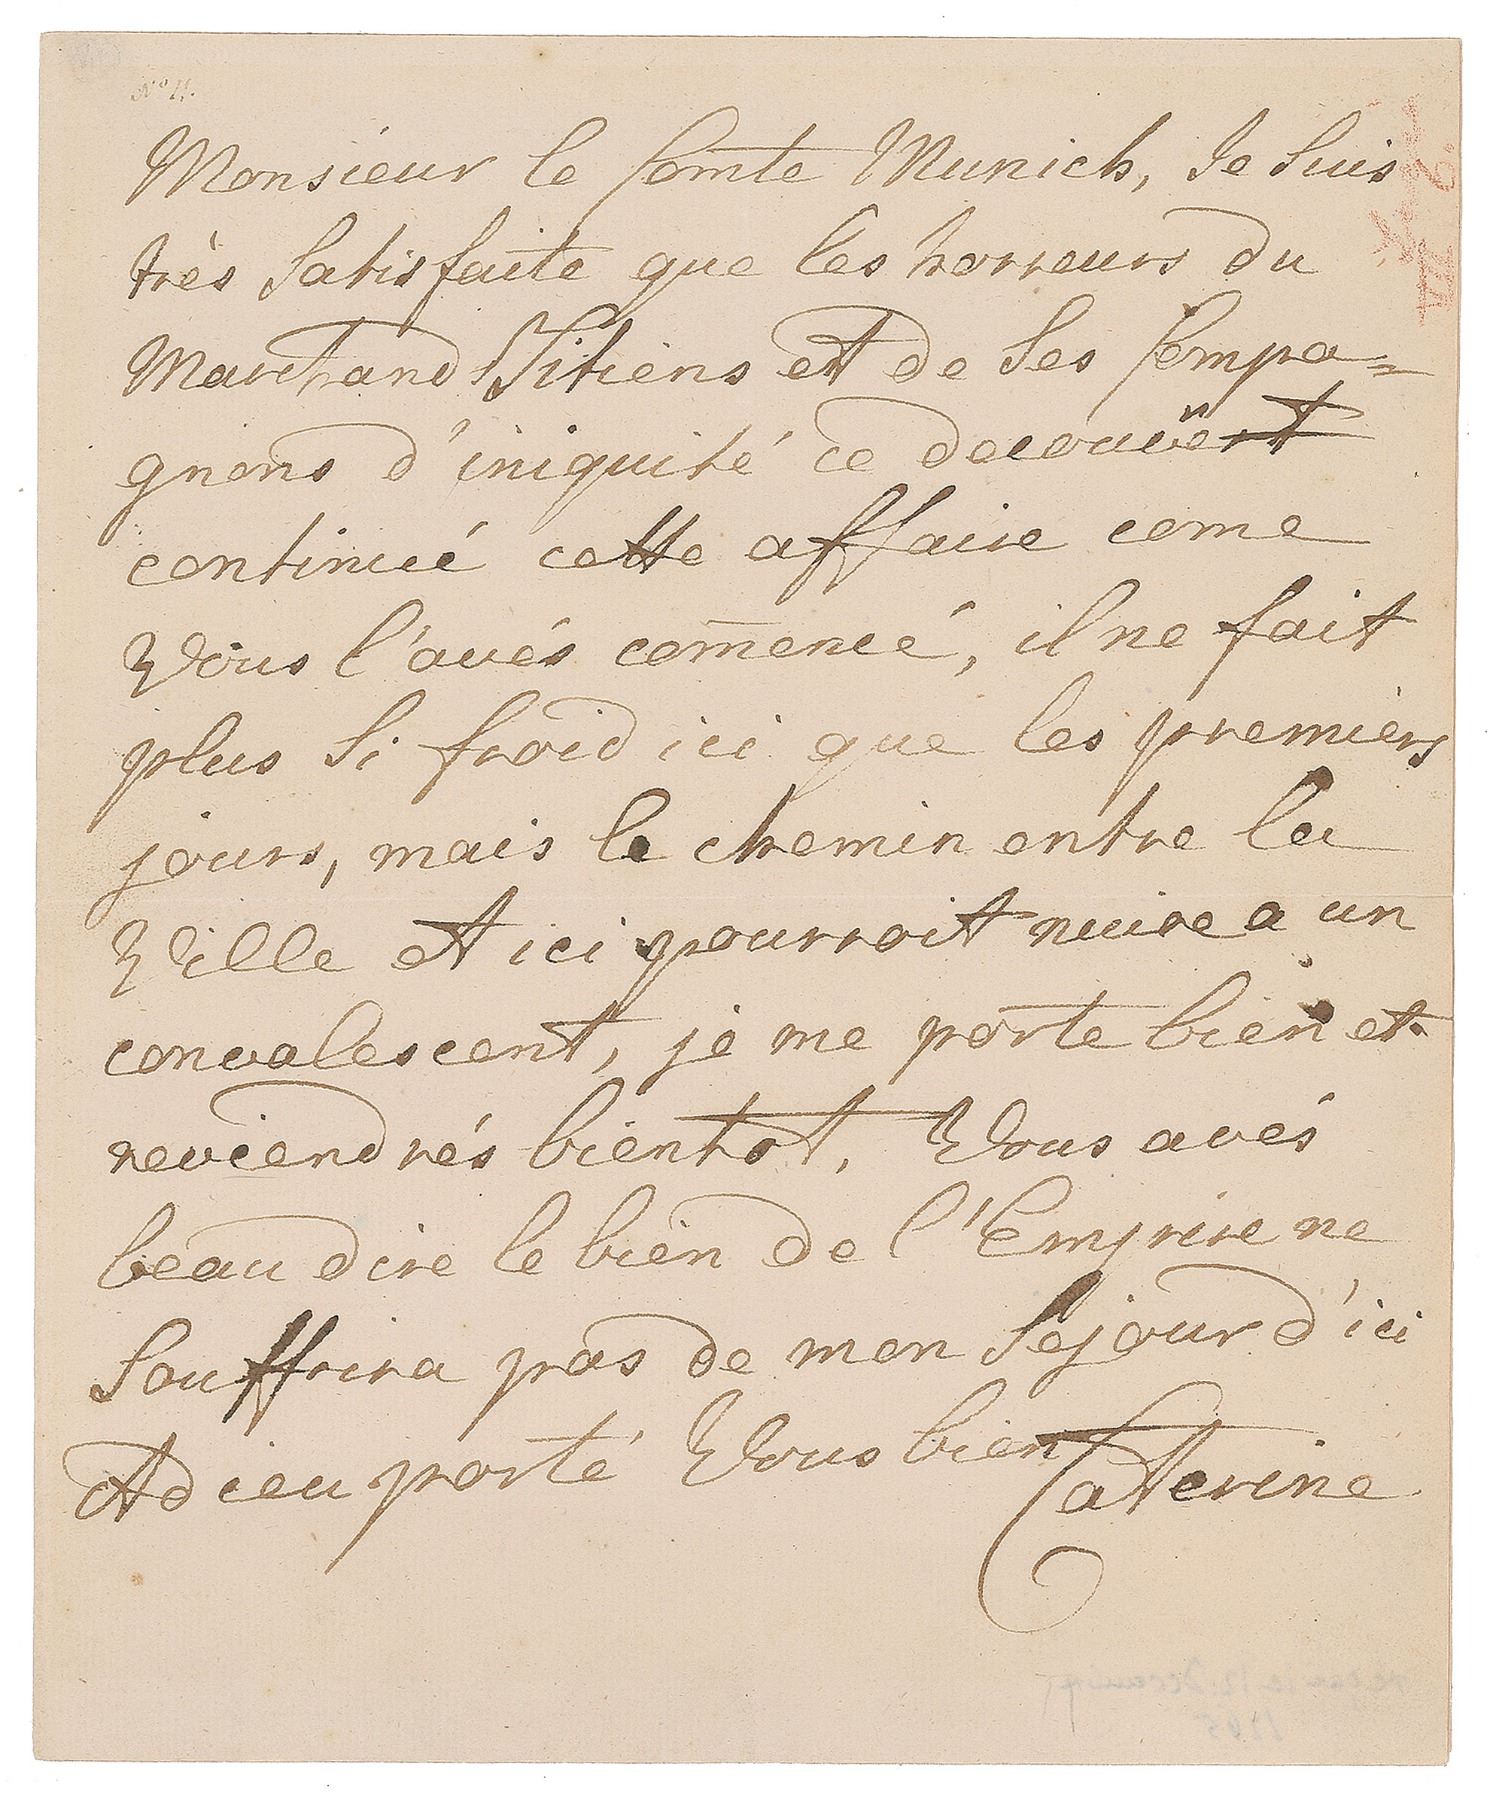 No 11.
Monsieur le Comte Munich, Je Suis
très Satisfaite que les horreurs du
Marchand Sitiens et de Ses Compa=
gnons d'iniquité ce decouvert
continué cette affaire come
Vous l'avés comencé, il ne fait
plus Si froid ici que les premiers
jours, mais le chemin entre la
Ville et ici pourroit nuire a un
convalescent, je me porte bien et
reviendrés bientot, Vous avés
beau dire le bien de l'Empire ne
Souffrira pas de mon Sejour d'ici
Adieu porté Vous bien Caterine